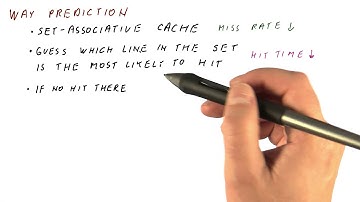 WAY PREDICTION
• SET-ASSOCIATIVE CACHE MISS RATE ↓
• GUESS WHICH LINE IN THE SET
IS THE MOST LIKELY TO HIT HIT TIME ↓
• IF NO HIT THERE